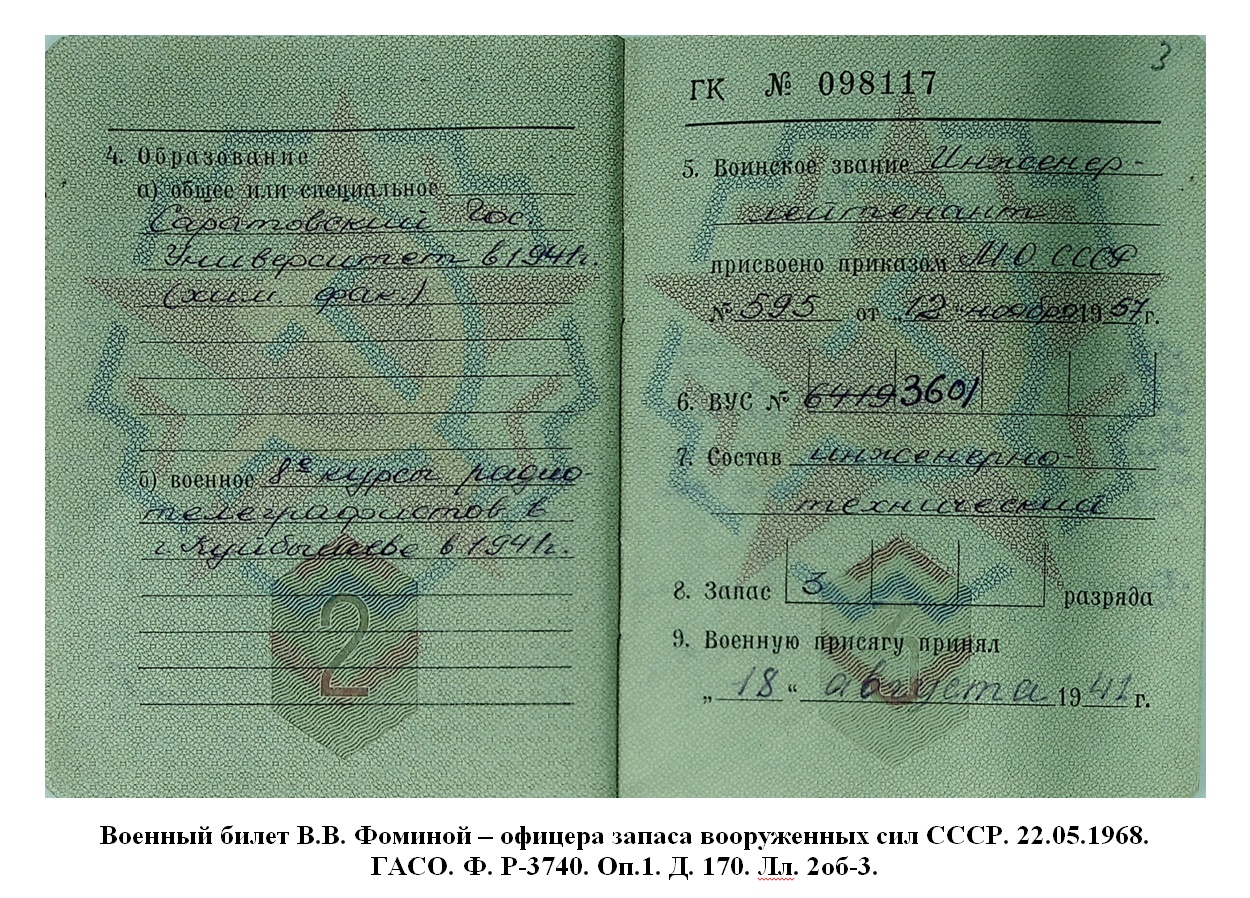 4. Образование
а) общее или специальное
Саратовский Гос
Университет в 1941г.
(хим. фак.)
б) военное 8е курсы радио-
телеграфистов в
г. Куйбышеве в 1941г.
2
3
ГК № 098117
5. Воинское звание Инженер-
лейтенант
присвоено приказом МО СССР
№ 595 от „12“ ноября 1957 г.
6. ВУС № 6419 3601
7. Состав инженерно-
технический
8. Запас 3 разряда
9. Военную присягу принял
„18“ августа 1941 г.
3
Военный билет В.В. Фоминой – офицера запаса вооруженных сил СССР. 22.05.1968.
ГАСО. Ф. Р-3740. Оп.1. Д. 170. Лл. 2об-3.